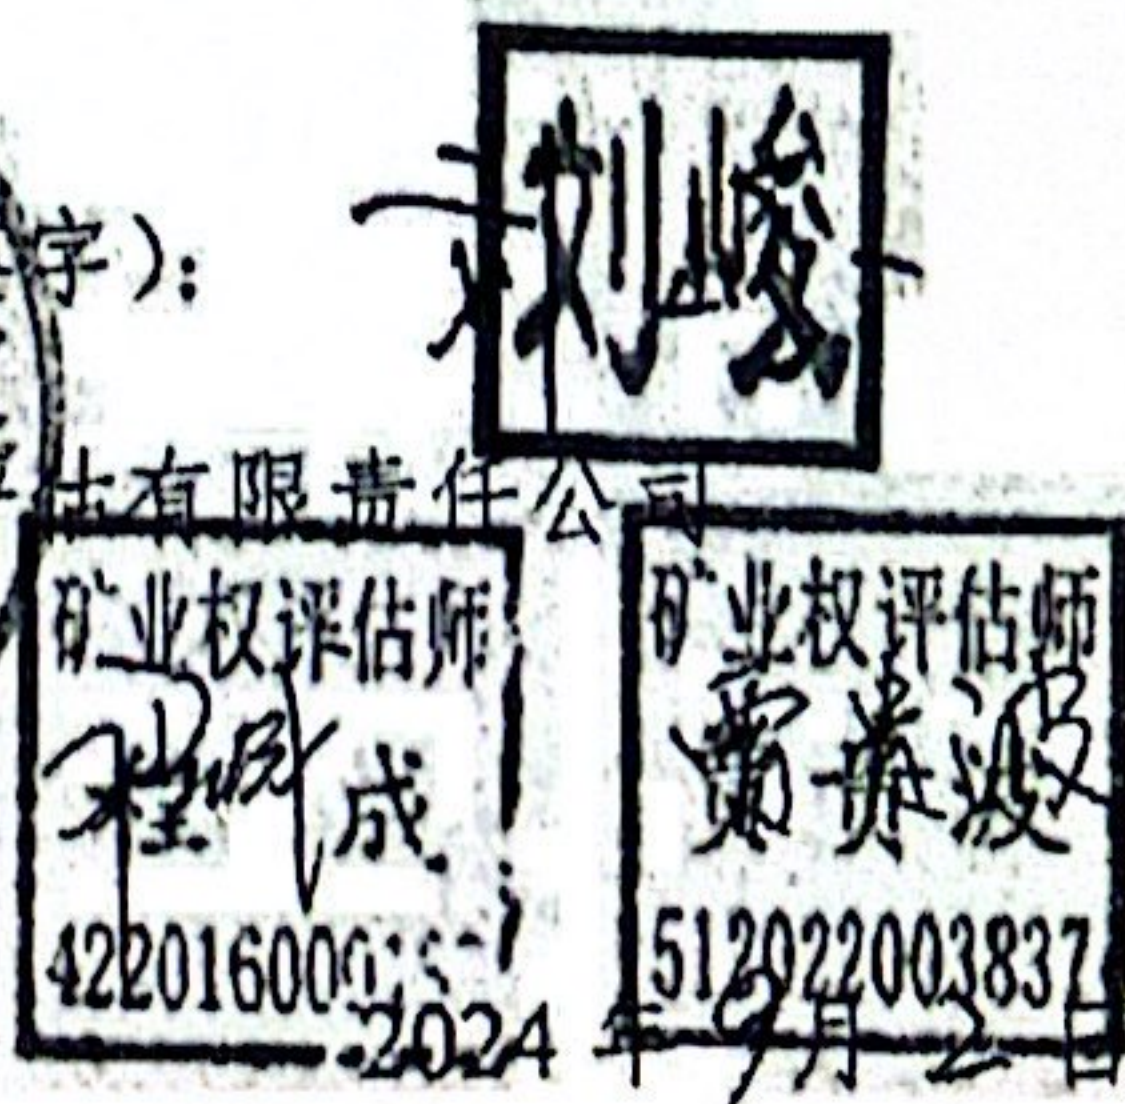 字）：
刘峻
估有限责任公司
矿业权评估师
程 成
422016000
矿业权评估师
贾贵波
512022003837
2024年9月2日